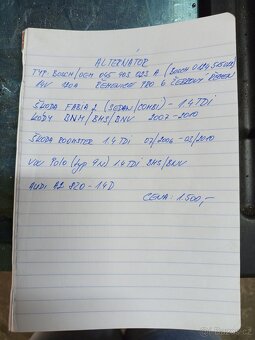 ALTERNÁTOR
TYP: BOSCH/OEM 045 903 023 A (BOSCH
14V 120A ŘEMENICE PRO 6 ŽEBROVÝ ŘEMEN
ŠKODA FABIA 2 (SEDAN/COMBI) - 1.4 TDI
KÓDY BNM/BMS/BNV 2007-2010
ŠKODA ROOMSTER 1.4 TDI 07/2006 - 03/2010
VW POLO (typ 9N) 1.4 TDI BMS/BNV
AUDI A2 8Z0 - 1.4D
CENA: 1.500,-